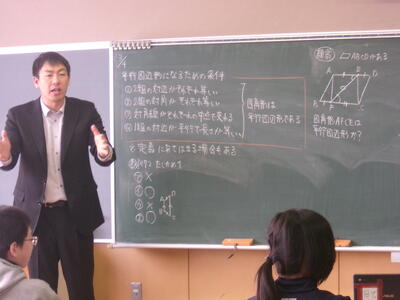 3/4
平行四辺形になるための条件
① 2組の対辺がそれぞれ等しい
② 2組の対角がそれぞれ等しい
③ 対角線がそれぞれの中点で交わる
④ 1組の対辺が平行で長さが等しい
四角形は
平行四辺形である
と定義にあてはまる場合もある
たしかめて
① ×
② ○
③ ×
④ ○
A D
B C
がある
A E D
B F C
四角形AFCEは
平行四辺形か?